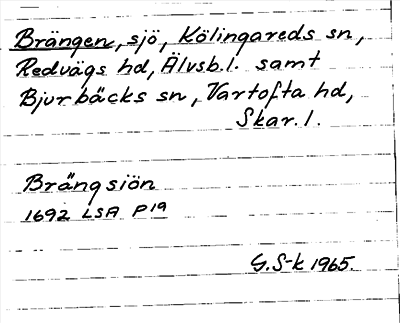 Brängen, sjö, Kölingareds sn,
Redvägs hd, Älvsb.l. samt
Bjurbäcks sn, Vartofta hd,
Skar.l.
Brängsiön
1692 LSA P19
G.S-k 1965.